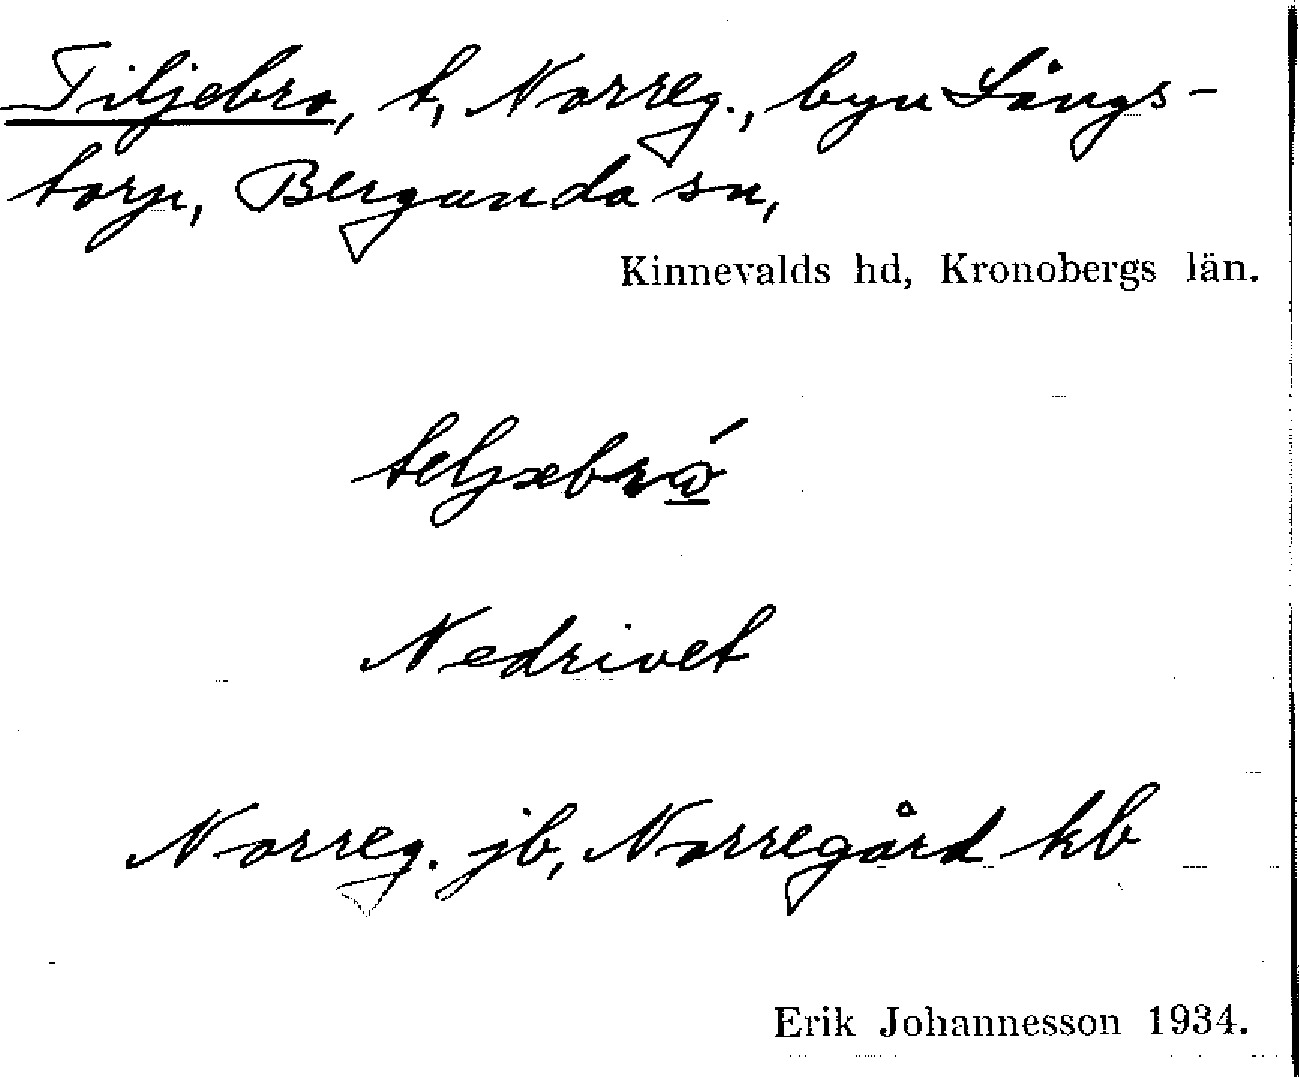 Tiljebro, t, Norreg., byn Långs-
torp, Bergunda sn,
Kinnevalds hd, Kronobergs län.
Nedrivet
Norreg. jb, Norregård kb
Erik Johannesson 1934.